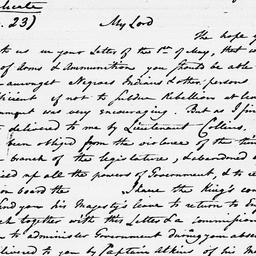 . 23) My Lord
The hope y
to us in your Letter of the 1st of May, that w
of Arms & Ammunition you should be able
amongst Negroes Indians & other persons
ficient if not to subdue Rebellion at le
ment was very encouraging. But as I fin
delivered to me by Lieutenant Collins,
been obliged from the violence of the tim
branch of the legislature, & abandoned a
ised up all the powers of Government, & to re
on board the I have the King's com
send you his Majesty's leave to return to
ck together with this Letter & a commission
to administer Government during your absen
livered to you by Captain Atkins of his M